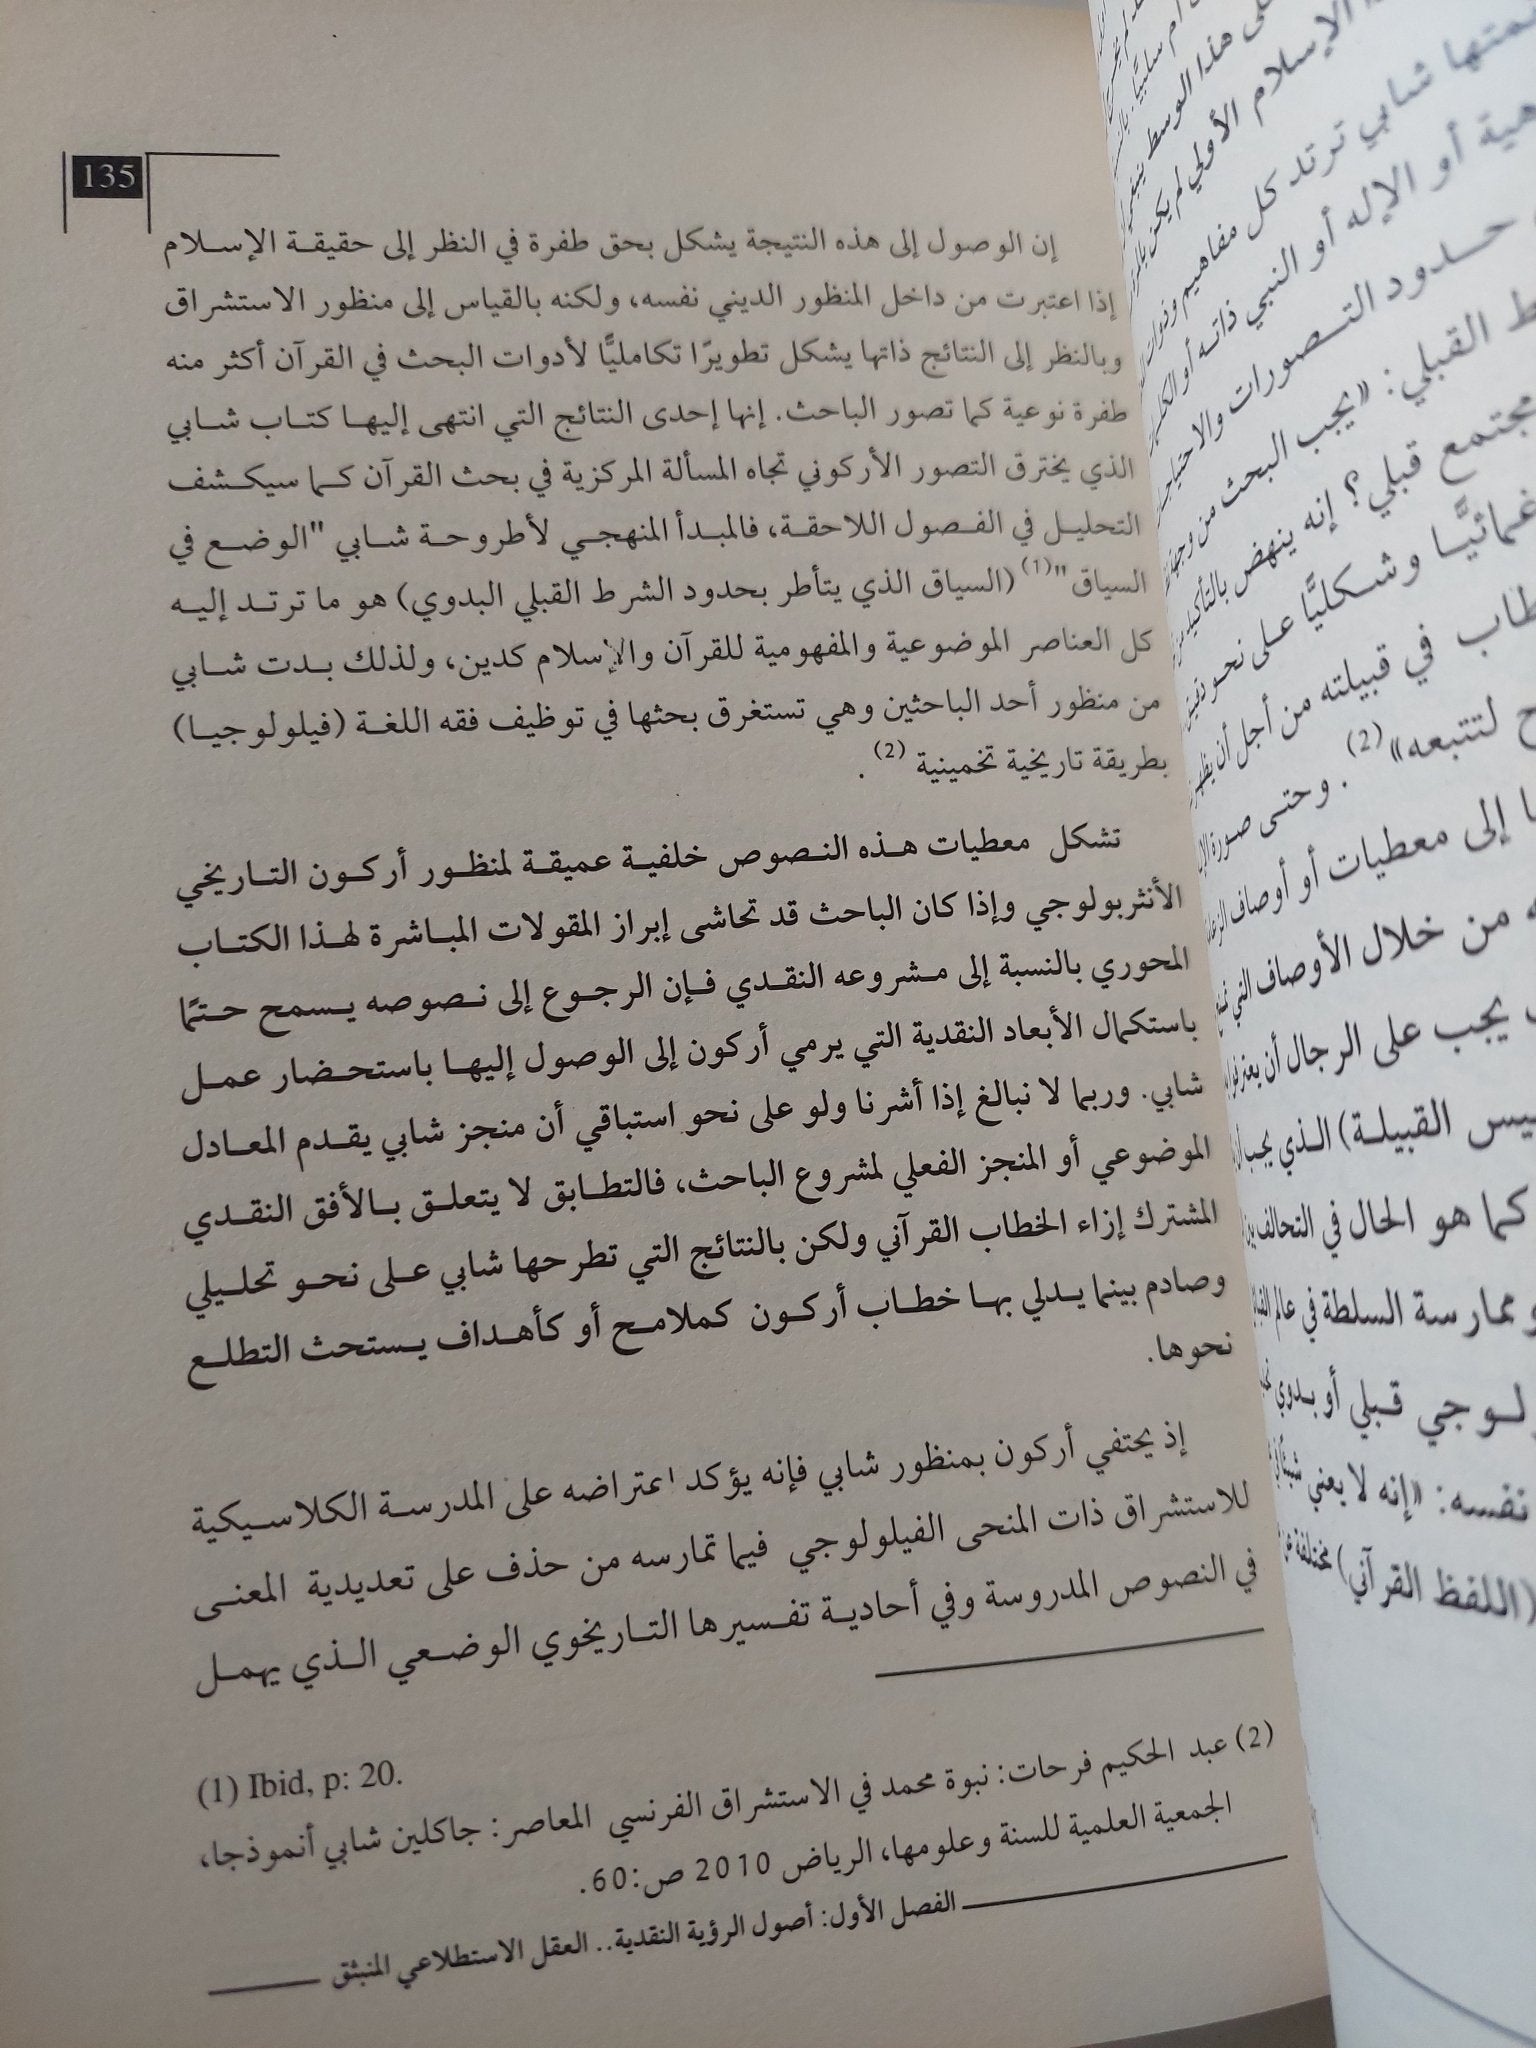 135
إن الوصول إلى هذه النتيجة يشكل بحق طفرة في النظر إلى حقيقة الإسلام
إذا اعتبرت من داخل المنظور الديني نفسه، ولكنه بالقياس إلى منظور الاستشراق
وبالنظر إلى النتائج ذاتها يشكل تطويرًا تكامليًّا لأدوات البحث في القرآن أكثر منه
طفرة نوعية كما تصور الباحث. إنها إحدى النتائج التي انتهى إليها كتاب شابي
الذي يخترق التصور الأركوني تجاه المسألة المركزية في بحث القرآن كما سيكشف
التحليل في الفصول اللاحقة، فالمبدأ المنهجي لأطروحة شابي "الوضع في
السياق"(1) (السياق الذي يتأطر بحدود الشرط القبلي البدوي) هو ما ترتد إليه
كل العناصر الموضوعية والمفهومية للقرآن والإسلام كدين، ولذلك بدت شابي
من منظور أحد الباحثين وهي تستغرق بحثها في توظيف فقه اللغة (فيلولوجيا)
بطريقة تاريخية تخمينية (2).
تشكل معطيات هذه النصوص خلفية عميقة لمنظور أركون التاريخي
الأنثربولوجي وإذا كان الباحث قد تحاشى إبراز المقولات المباشرة لهذا الكتاب
المحوري بالنسبة إلى مشروعه النقدي فإن الرجوع إلى نصوصه يسمح حتمًا
باستكمال الأبعاد النقدية التي يرمي أركون إلى الوصول إليها باستحضار عمل
شابي. وربما لا نبالغ إذا أشرنا ولو على نحو استباقي أن منجز شابي يقدم المعادل
الموضوعي أو المنجز الفعلي لمشروع الباحث، فالتطابق لا يتعلق بالأفق النقدي
المشترك إزاء الخطاب القرآني ولكن بالنتائج التي تطرحها شابي على نحو تحليلي
وصادم بينما يدلي بها خطاب أركون كملامح أو كأهداف يستحث التطلع
نحوها.
إذ يحتفي أركون بمنظور شابي فإنه يؤكد اعتراضه على المدرسة الكلاسيكية
للاستشراق ذات المنحى الفيلولوجي فيما تمارسه من حذف على تعديدية المعنى
في النصوص المدروسة وفي أحادية تفسيرها التاريخوي الوضعي الذي يهمل
(1) Ibid, p: 20.
(2) عبد الحكيم فرحات: نبوة محمد في الاستشراق الفرنسي المعاصر: جاكلين شابي أنموذجا،
الجمعية العلمية للسنة وعلومها، الرياض 2010 ص:60.
الفصل الأول: أصول الرؤية النقدية.. العقل الاستطلاعي المنبثق
الإسلام الأولي لم يكن
شابي ترتد كل مفاهيم
أو الإله أو النبي ذاته أو
حدود التصورات
القبلي: «يجب البحث من
مجتمع قبلي؟ إنه ينهض بالتأكيد
وشكليًّا على نحو
في قبيلته من أجل أن
لتتبعه»(2). وحتى صورة
إلى معطيات أو أوصاف
من خلال الأوصاف التي
يجب على الرجال أن
القبيلة) الذي يجب
كما هو الحال في التحالف
وممارسة السلطة في عالم
قبلي أو بدوي
نفسه: «إنه لا يعني
(اللفظ القرآني) مختلفة